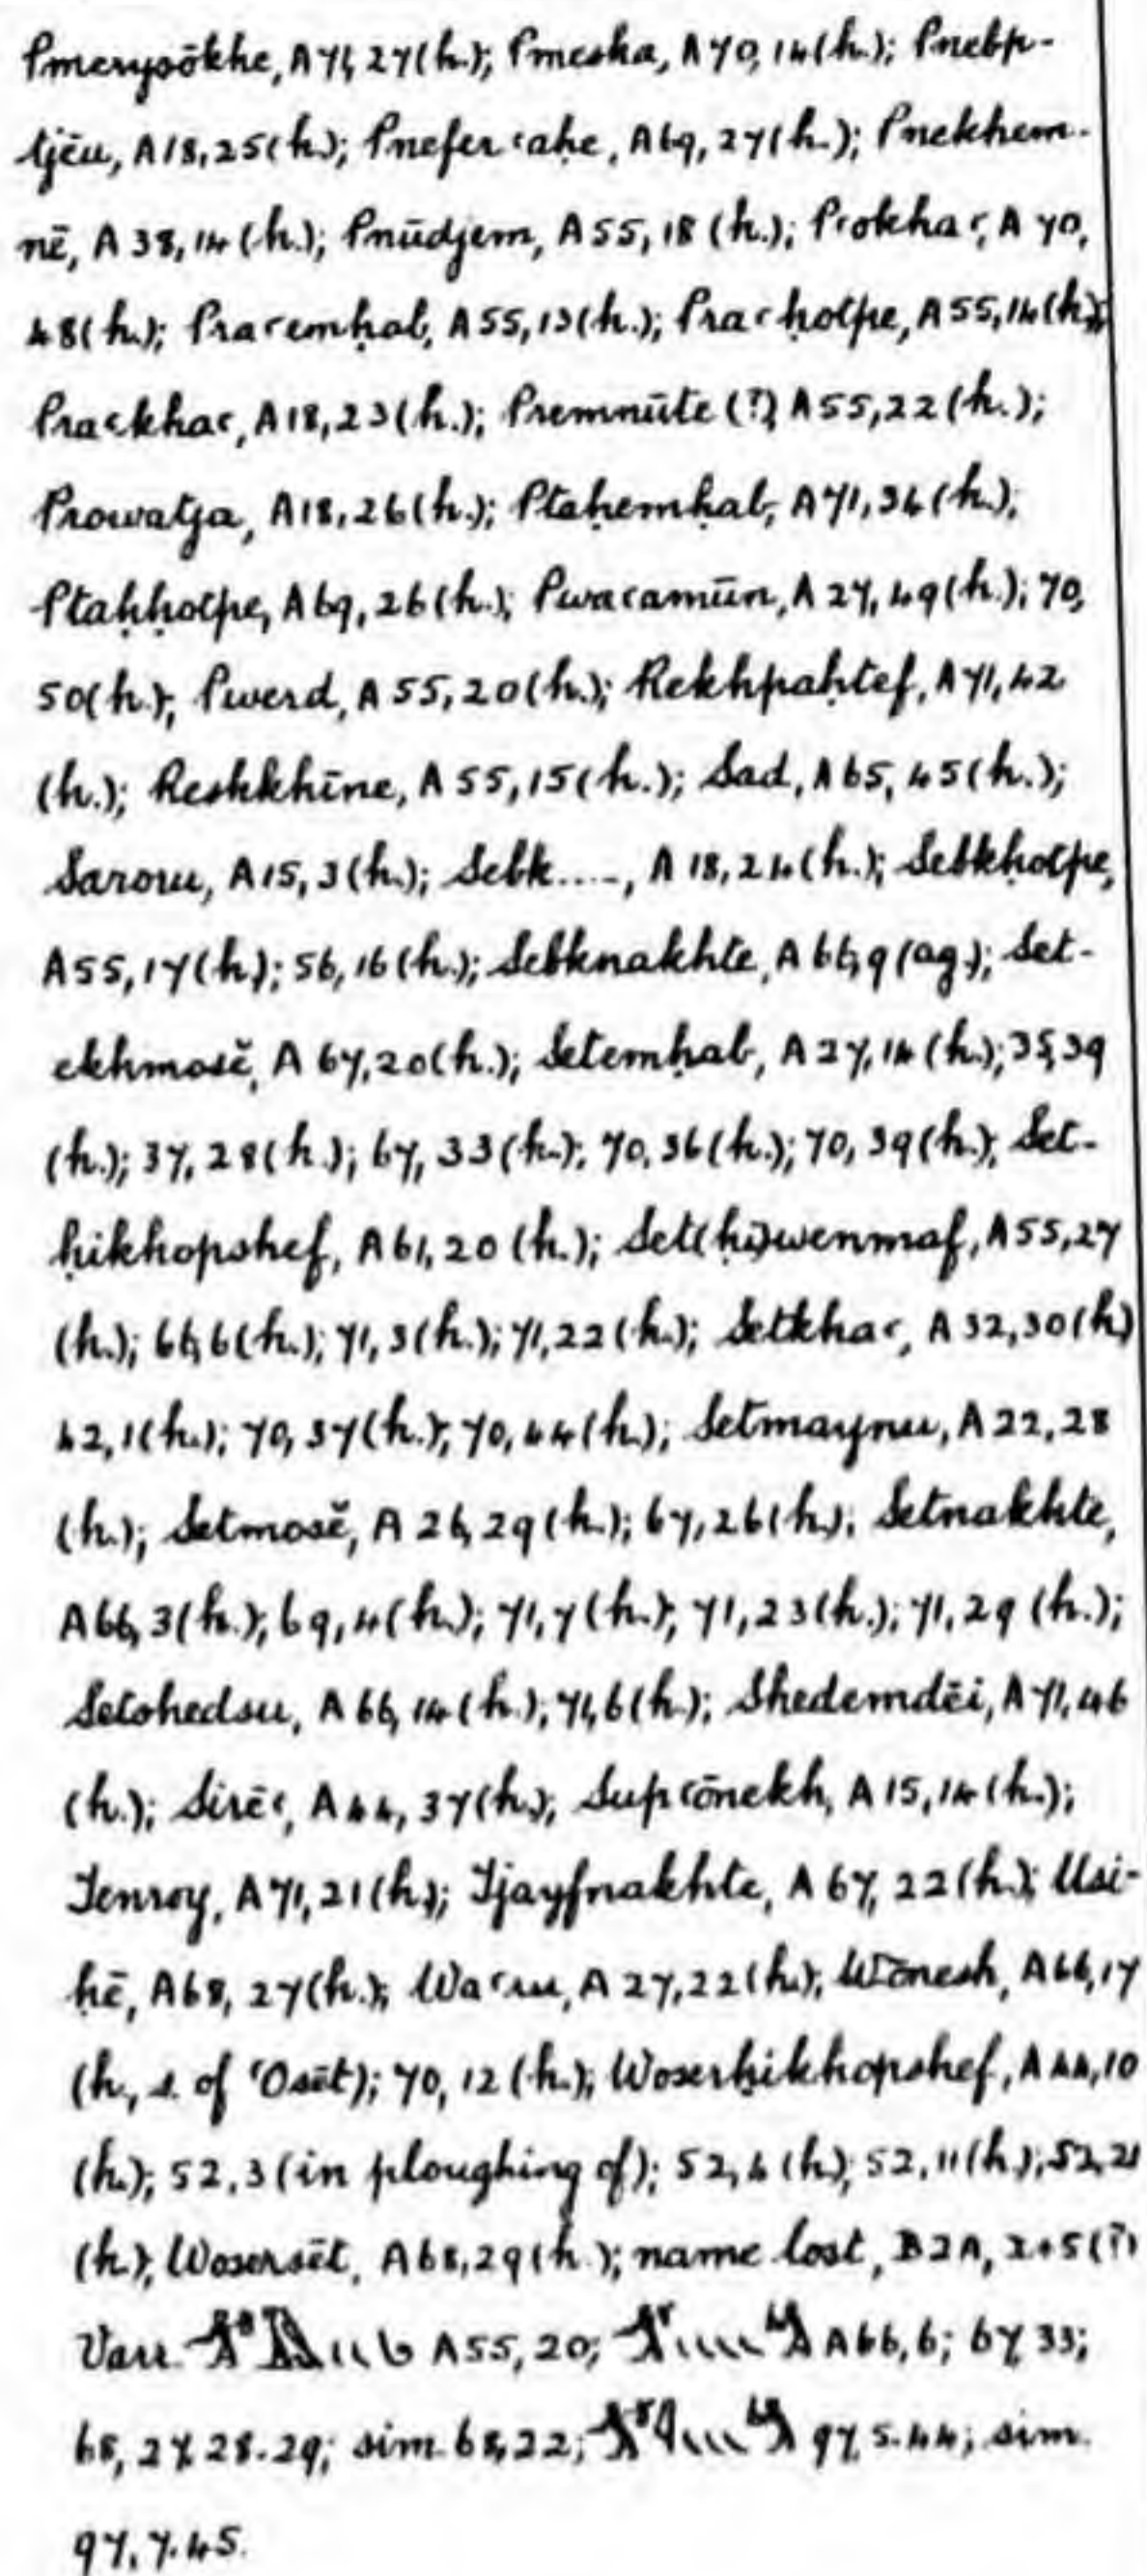 Pmerysōkhe, A 71, 27 (h.); Pmesha, A 70, 14 (h.); Pnebp-
tjēu, A 18, 25 (h.); Pneferꜥaḥe, A 69, 27 (h.); Pnekhem-
nē, A 38, 14 (h.); Pnūdjem, A 55, 18 (h.); Pꜥokhaꜥ, A 70,
48 (h.); Praꜥemḥab, A 55, 13 (h.); Praꜥḥotpe, A 55, 14 (h.);
Praꜥkhaꜥ, A 18, 23 (h.); Premnūte (?), A 55, 22 (h.);
Prowatja, A 18, 26 (h.); Ptaḥemḥab, A 71, 34 (h.);
Ptaḥḥotpe, A 69, 26 (h.); Pwaꜥamūn, A 27, 49 (h.); 70,
50 (h.); Pwerd, A 55, 20 (h.); Rekhpaḥtef, A 71, 42
(h.); Reshkhīne, A 55, 15 (h.); Sad, A 65, 45 (h.);
Saroru, A 15, 3 (h.); Sebk...., A 18, 24 (h.); Sebkḥotpe,
A 55, 17 (h.); 56, 16 (h.); Sebknakhte, A 66, 9 (ag.); Set-
ekhmosĕ, A 67, 20 (h.); Setemḥab, A 27, 14 (h.); 35, 39
(h.); 37, 28 (h.); 67, 33 (h.); 70, 36 (h.); 70, 39 (h.); Set-
ḥikhopshef, A 61, 20 (h.); Set(ḥi)wenmaf, A 55, 27
(h.); 66, 6 (h.); 71, 3 (h.); 71, 22 (h.); Setkhaꜥ, A 32, 30 (h.)
42, 1 (h.); 70, 37 (h.); 70, 44 (h.); Setmaynu, A 22, 28
(h.); Setmosĕ, A 26, 29 (h.); 67, 26 (h.); Setnakhte,
A 66, 3 (h.); 69, 4 (h.); 71, 7 (h.); 71, 23 (h.); 71, 29 (h.);
Setshedsu, A 66, 14 (h.); 71, 6 (h.); Shedemdēi, A 71, 46
(h.); Sirēꜥ, A 44, 37 (h.); Supꜥōnekh, A 15, 14 (h.);
Tenroy, A 71, 21 (h.); Tjayfnakhte, A 67, 22 (h.); Usi-
ḥē, A 68, 27 (h.); Waꜥru, A 27, 22 (h.); Wōnesh, A 66, 17
(h., s. of ꜥOsēt); 70, 12 (h.); Woserḥikhopshef, A 44, 10
(h.); 52, 3 (in ploughing of); 52, 4 (h.); 52, 11 (h.); 52, 21
(h.); Wosersēt, A 68, 29 (h.); name lost, B 2A, x+5 (?)
Varr. A 55, 20; A 66, 6; 67, 33;
68, 27. 28. 29; sim. 68, 22; 97, 5. 44; sim.
97, 7. 45.